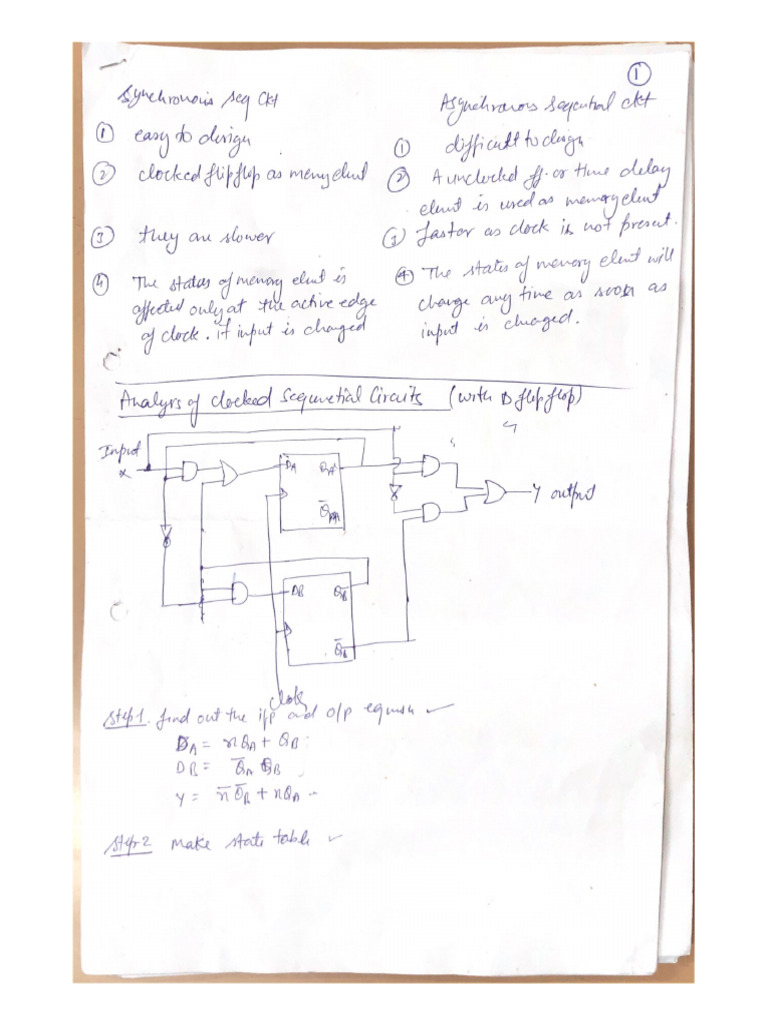 1
Synchronous seq ckt
① easy to design
② clocked flipflop as memy elemt
③ they are slower
④ The states of memory elemt is
affected only at the active edge
of clock. if input is changed
Asynchronous sequential ckt
① difficult to design
② A unclocked ff. or time delay
elemt is used as memory elemt
③ faster as clock is not present.
④ The states of memory elemt will
change any time as soon as
input is changed.
Analyss of clocked Sequnetial Circuits (with D flip flop)
Input
x
DA QA
Q̅A
Y output
DB QB
Q̅B
Clock
Step 1. find out the i/p and o/p
DA = xQA + QB
DB = Q̅A QB
Y = x̅Q̅B + xQA
Step-2 Make state table